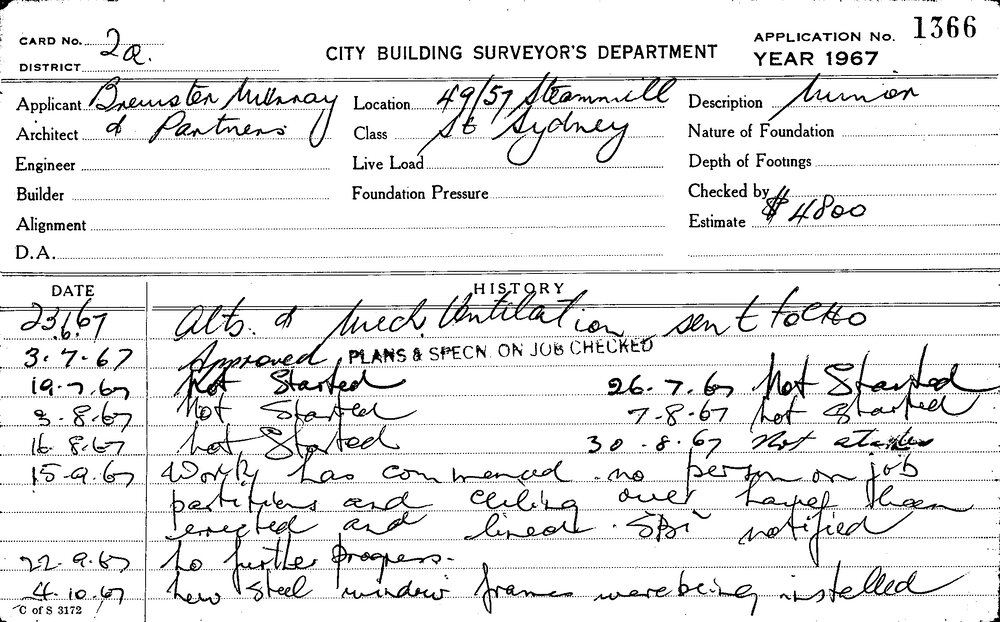 CARD No. 2a.
DISTRICT
CITY BUILDING SURVEYOR'S DEPARTMENT
APPLICATION No. 1366
YEAR 1967
Applicant Brewster Murray
Architect & Partners
Engineer
Builder
Alignment
D.A.
Location 49/57 Steammill
Class St Sydney
Live Load
Foundation Pressure
Description Minor
Nature of Foundation
Depth of Footings
Checked by
Estimate $4800
DATE HISTORY
23.6.67 Alts. & Mech Ventilation sent to CHO
3.7.67 Approved PLANS & SPECN. ON JOB CHECKED
19.7.67 Not Started 26.7.67 Not Started
3.8.67 Not Started 7.8.67 Not Started
16.8.67 Not Started 30.8.67 Not started
15.9.67 Work has commenced no person on job
partitions and ceiling over have been
erected and lined. SBI notified
22.9.67 No further Progress.
4.10.67 New Steel window frames were being installed
C of S 3172